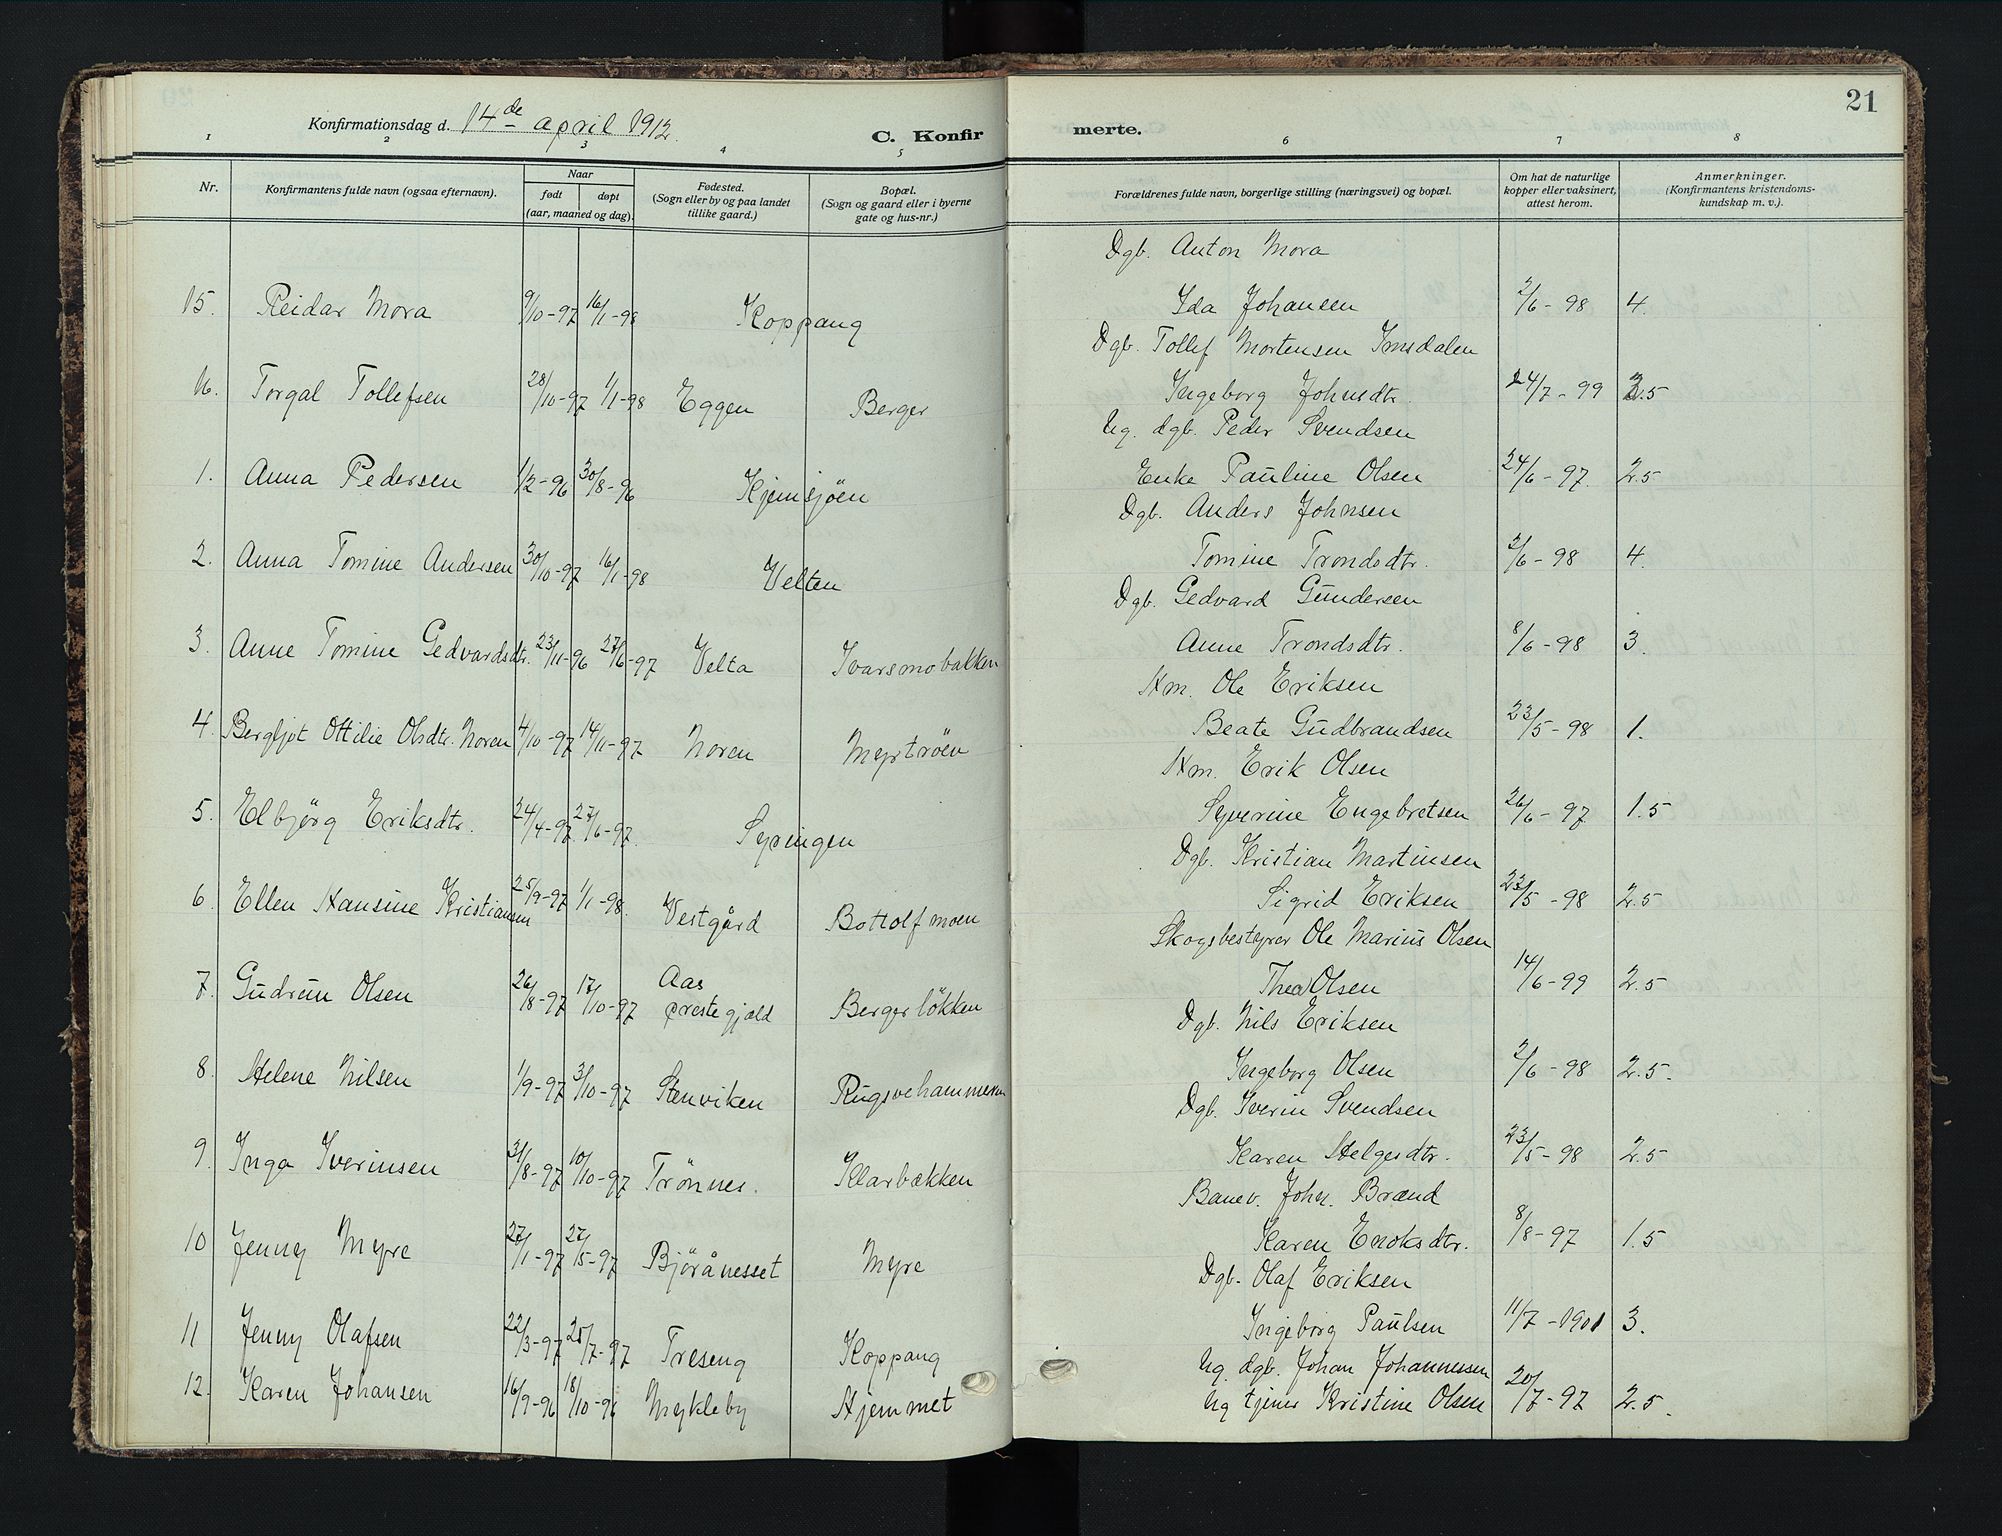 21
Konfirmationsdag d. 14de april 1912.
C. Konfir merte.
1 2 3 4 5 6 7 8
Nr.
Konfirmantens fulde navn (ogsaa efternavn).
Naar
født døpt
(aar, maaned og dag).
Fødested.
(Sogn eller by og paa landet
tillike gaard.)
Bopæl.
(Sogn og gaard eller i byerne
gate og hus-nr.)
Forældrenes fulde navn, borgerlige stilling (næringsvei) og bopæl.
Om hat de naturlige
kopper eller vaksinert,
attest herom.
Anmerkninger.
(Konfirmantens kristendoms-
kundskap m. v.).
Dgb. Anton Mora
15. Reidar Mora 9/10-97 16/1-98 Koppang Ida Johansen 2/6-98 4.
Dgb. Tollef Mortensen Imsdalen
16. Torgal Tollefsen 28/10-97 1/1-98 Eggen Berger Ingeborg Johnsdtr. 24/7-99 2.5
Ug. dgb. Peder Svendsen
1. Anna Pedersen 1/2-96 30/8-96 Kjemsjöen Enke Pauline Olsen 24/6-97. 2.5
Dgb. Anders Johnsen
2. Anna Tomine Andersen 30/10-97 16/1-98 Velten Tomine Trondsdtr. 2/6-98 4.
Dgb. Gedvard Gundersen
3. Anne Tomine Gedvardsdtr. 23/11-96 27/6-97 Velta Ivarsmobakken Anne Trondsdtr. 8/6-98 3.
Hm. Ole Eriksen
4. Bergljot Ottilie Olsdtr. Noren 4/10-97 14/11-97 Noren Myrtröen Beate Gudbrandsen 23/5-98 1.
Hm. Erik Olsen
5. Elbjörg Eriksdtr. 24/4-97. 27/6-97. Syringen Syverine Engebretsen 26/6-97 1.5
Dgb. Kristian Martinsen
6. Ellen Hansine Kristiansen 25/9-97 1/1-98. Vestgård Bottolfmoen Sigrid Eriksen 23/5-98 2.5
Skogsbestyrer Ole Marius Olsen
7. Gudrun Olsen 26/8-97 17/10-97 Aas prestegjæld Bergerlökken Thea Olsen 14/6-99 2.5
Dgb. Nils Eriksen
8. Helene Nilsen 1/9-97 3/10-97 Stenviken Rugsvehammeren Ingeborg Olsen 2/6-98 2.5.
Dgb. Iverin Svendsen
9. Inga Iverinsen 31/8-97 10/10-97 Trönnes. Klarbækken Karen Helgesdtr. 23/5-98 2.5
Banev. Johs. Brænd
10 Jenny Myre 27/1-97 27/5-97 Björånesset Myre Karen Enoksdtr. 8/8-97 1.5
Dgb. Olaf Eriksen
11 Jenny Olafsen 22/3-97 25/7-97 Treseng Koppang Ingeborg Paulsen 11/7-1901 3.
Ug. dgb. Johan Johannessen
12. Karen Johansen 16/9-96 18/10-96 Mykleby Hjemmet Ug tjener Kristine Olsen 20/7-97 2.5.